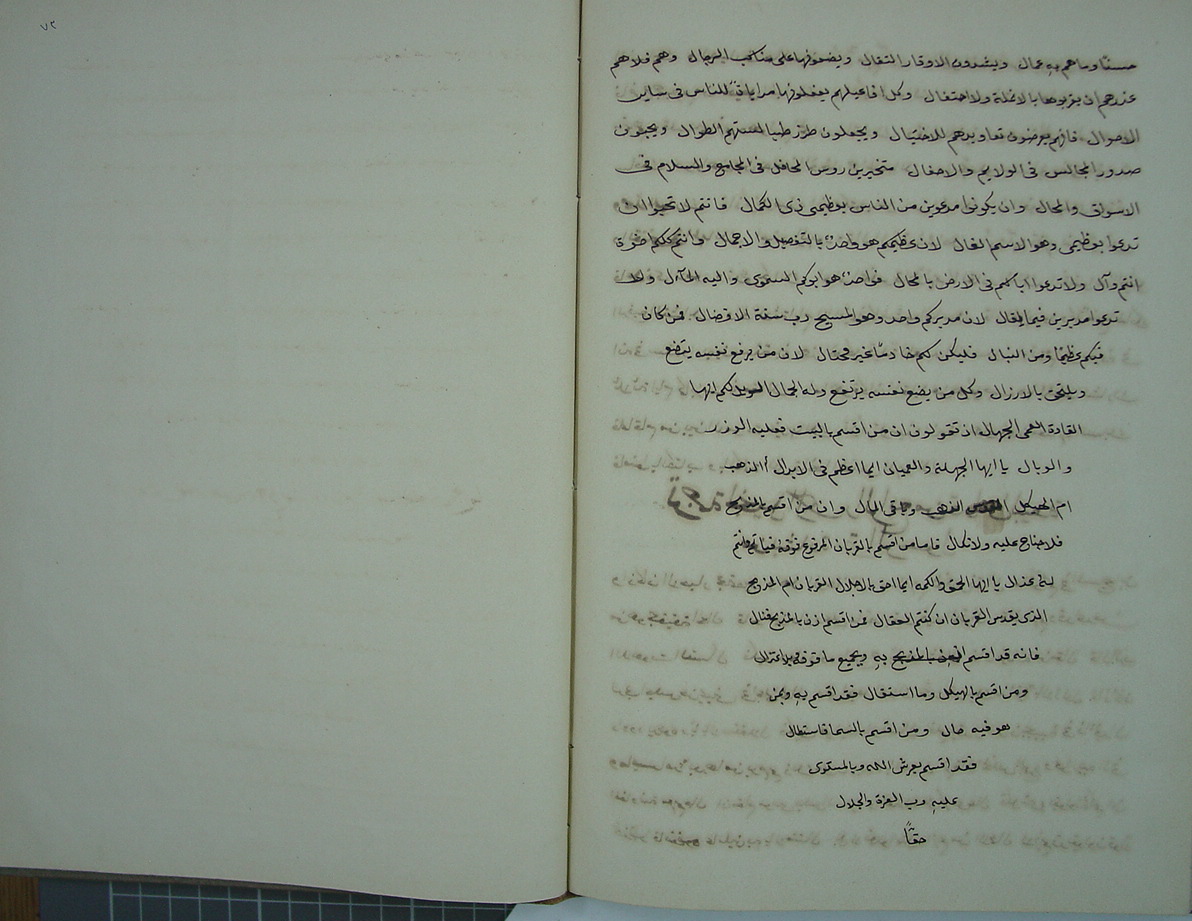 ٧٢
حسنًا وما هم به عمال ويشدون الاوقار الثقال ويضعونها على مناكب الرجال وهم فلا هم
عندهم ان يقربوها بالانملة ولا احتفال وكل افاعيلهم يفعلونها مراياة للناس في ساير
الاحوال فانهم يعرضون تعاويدهم للاختيال ويجعلون طرز طيالستهم الطوال ويحبون
صدور المجالس في الولايم والاحفال متخيرين روس المحافل في المجامع والسلام في
الاسواق والمحال وان يكونوا مدعوين من الناس بعظيمي ذي الكمال فانتم لا تحبوا ان
تدعوا بعظيمي وهو الاسم الغال لان عظيمكم هو واحد بالتفصيل والاجمال وانتم كلكم اخوة
انتم وآل ولا تدعوا اباكم في الارض بالمحال فواحد هو ابوكم السموي واليه المآل ولا
تدعوا مدبرين فيما يقال لان مدبركم واحد وهو المسيح رب سنة الافضال فمن كان
فيكم عظيمًا ومن النبال فليكن لكم خادمًا غير محتال لان من يرفع نفسه يتضع
ويلتحق بالارزال وكل من يضع نفسه يرتفع وله الجمال الويل لكم ايها
القادة العمي الجهال اذ تقولون ان من اقسم بالبيت فعليه الوزر
والوبال يا ايها الجهلة والعميان ايما اعظم في الابدال أالذهب
ام الهيكل المقدس الذهب وباقي المال وان من اقسم بالمذبح
فلا جناح عليه ولا نكال فاما من اقسم بالقربان المرفوع فوقه
يا ايها الحمق والكمه ايما احق بالاجلال القربان ام المذبح
الذي يقدس القربان ان كنتم العقال فمن اقسم اذن بالمذبح
فانه قد اقسم به وبجميع ما فوقه
ومن اقسم بالهيكل وما استقال فقد اقسم به وبمن
هو فيه حال ومن اقسم بالسما فاستطال
فقد اقسم بعرش الله وبالمستوى
عليه رب العزة والجلال
حقًا